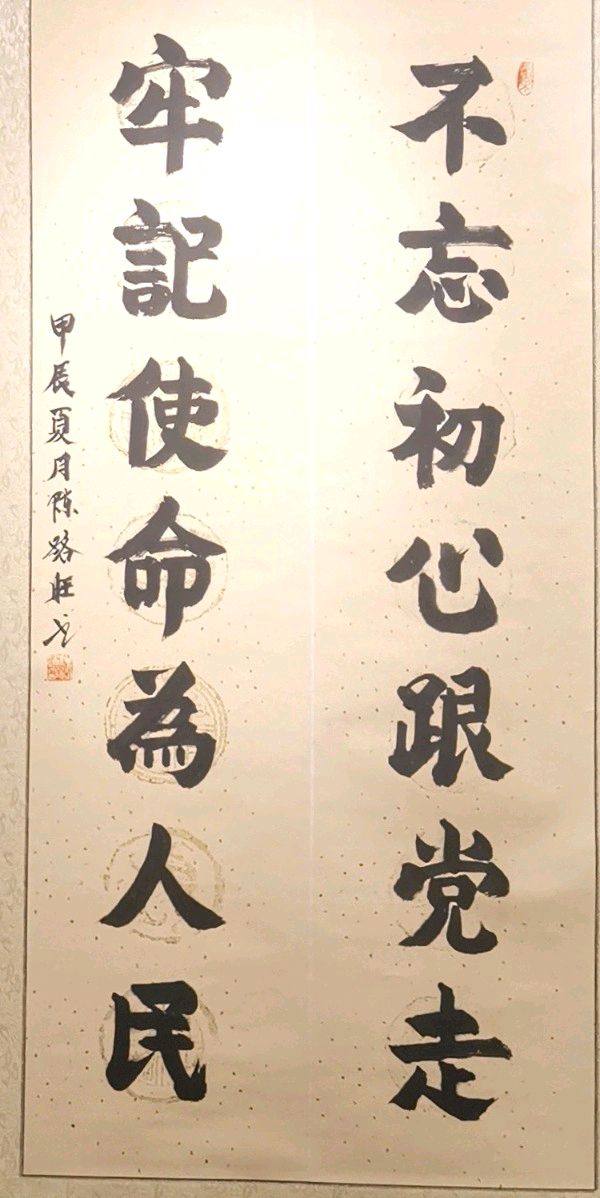 不忘初心跟党走
牢記使命為人民
甲辰夏月陈路旺书